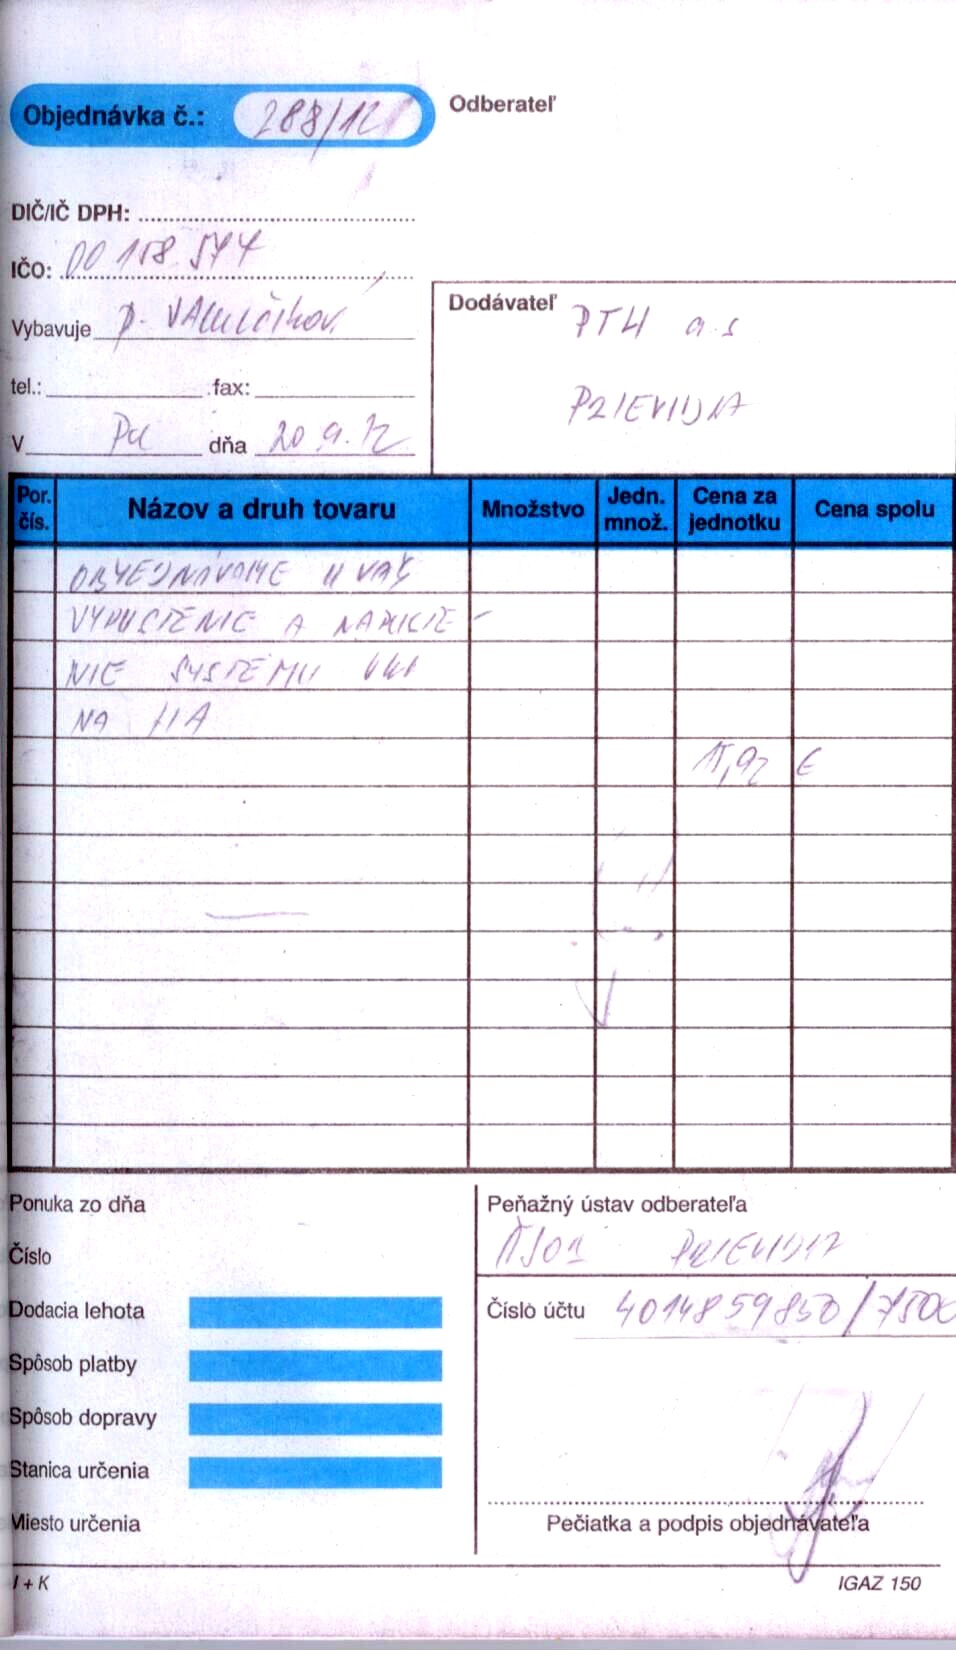 Objednávka č.: 288/12
Odberateľ
DIČ/IČ DPH:
IČO: 00 158 577
Vybavuje p.
tel.: fax:
V Pd dňa 20.9.12
Dodávateľ PTH a.s
PRIEVIDZA
Por. čís. Názov a druh tovaru Množstvo Jedn. množ. Cena za jednotku Cena spolu
OBJEDNÁVAME U VÁS
VYPUSTENIE A NAPUSTE-
NIE SYSTÉMU
NA
€
Ponuka zo dňa
Číslo
Dodacia lehota
Spôsob platby
Spôsob dopravy
Stanica určenia
Miesto určenia
Peňažný ústav odberateľa
ČSOB PRIEVIDZA
Číslo účtu 4014859850/7500
Pečiatka a podpis objednávateľa
I + K
IGAZ 150